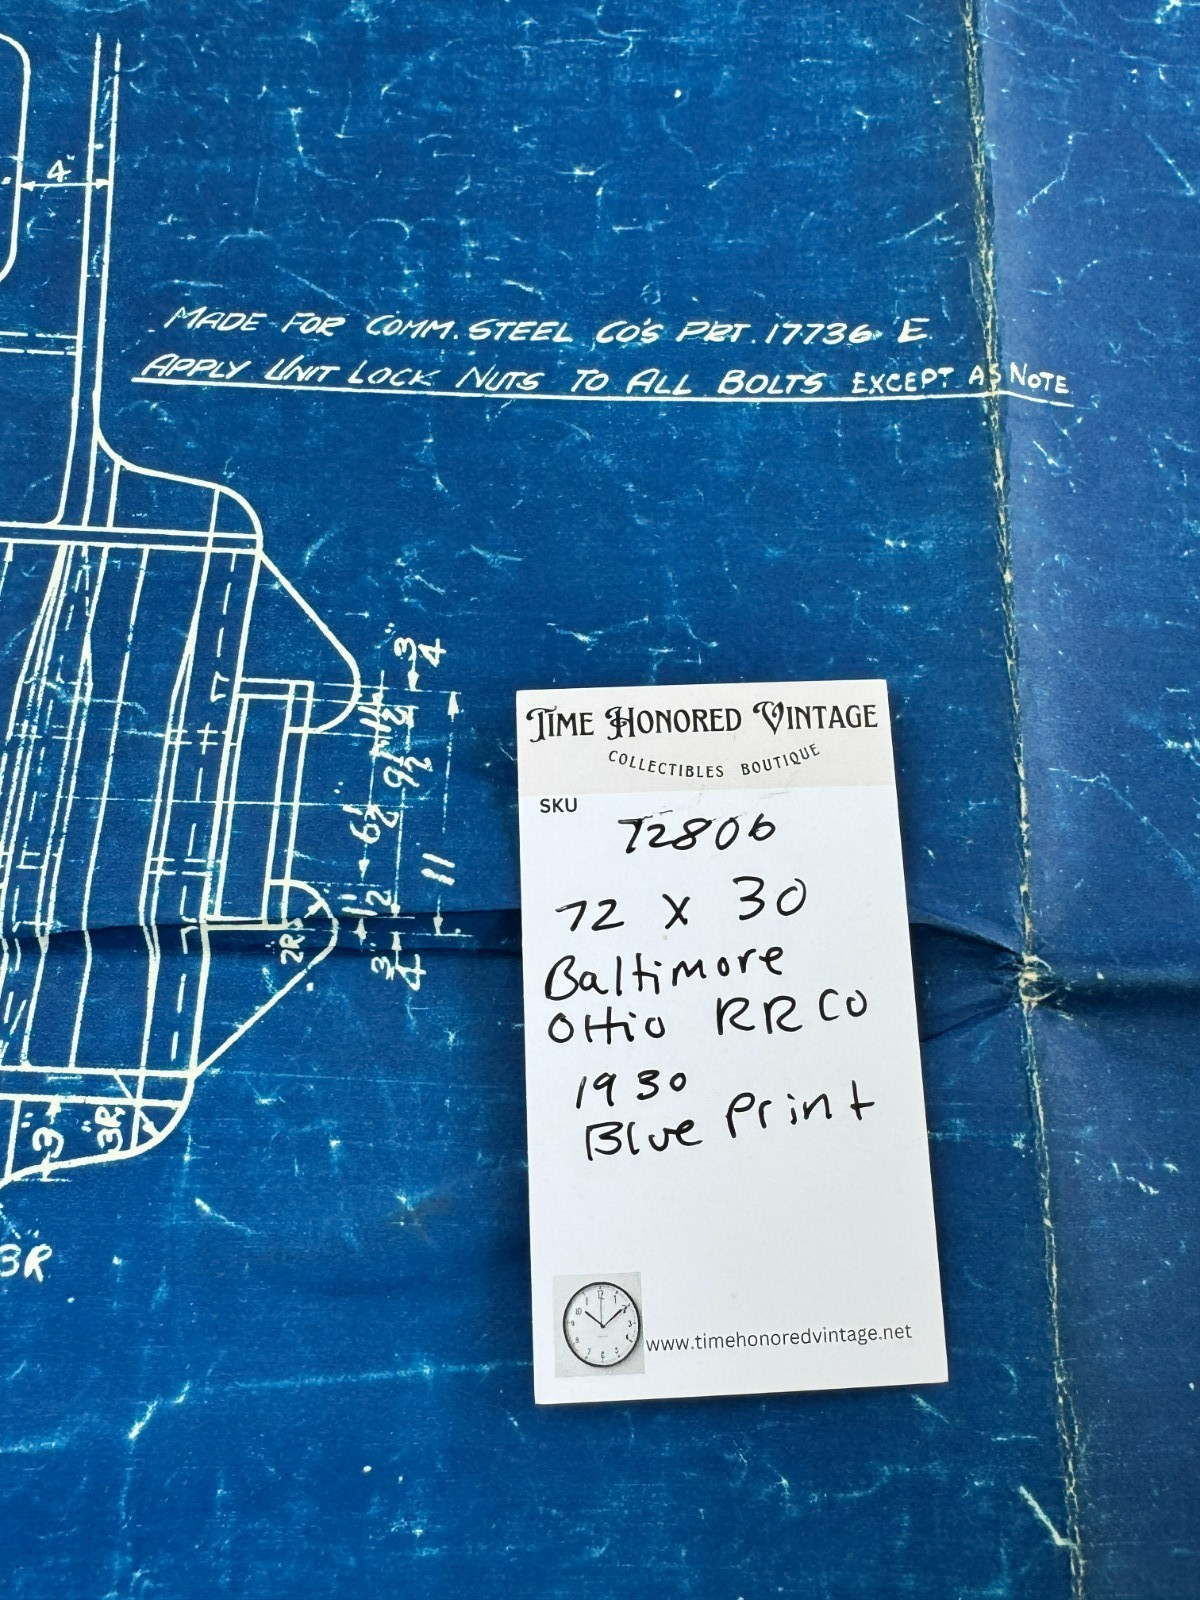 4"
MADE FOR COMM. STEEL CO'S PRT. 17736 E.
APPLY UNIT LOCK NUTS TO ALL BOLTS EXCEPT AS NOTE
3/4"
1 1/2"
9 1/2
6 1/2"
11
1 1/2
3/4"
2R
3"
3R
3R
TIME HONORED VINTAGE
COLLECTIBLES BOUTIQUE
SKU
T2806
72 X 30
Baltimore
OHio RR CO
1930
Blue Print
www.timehonoredvintage.net